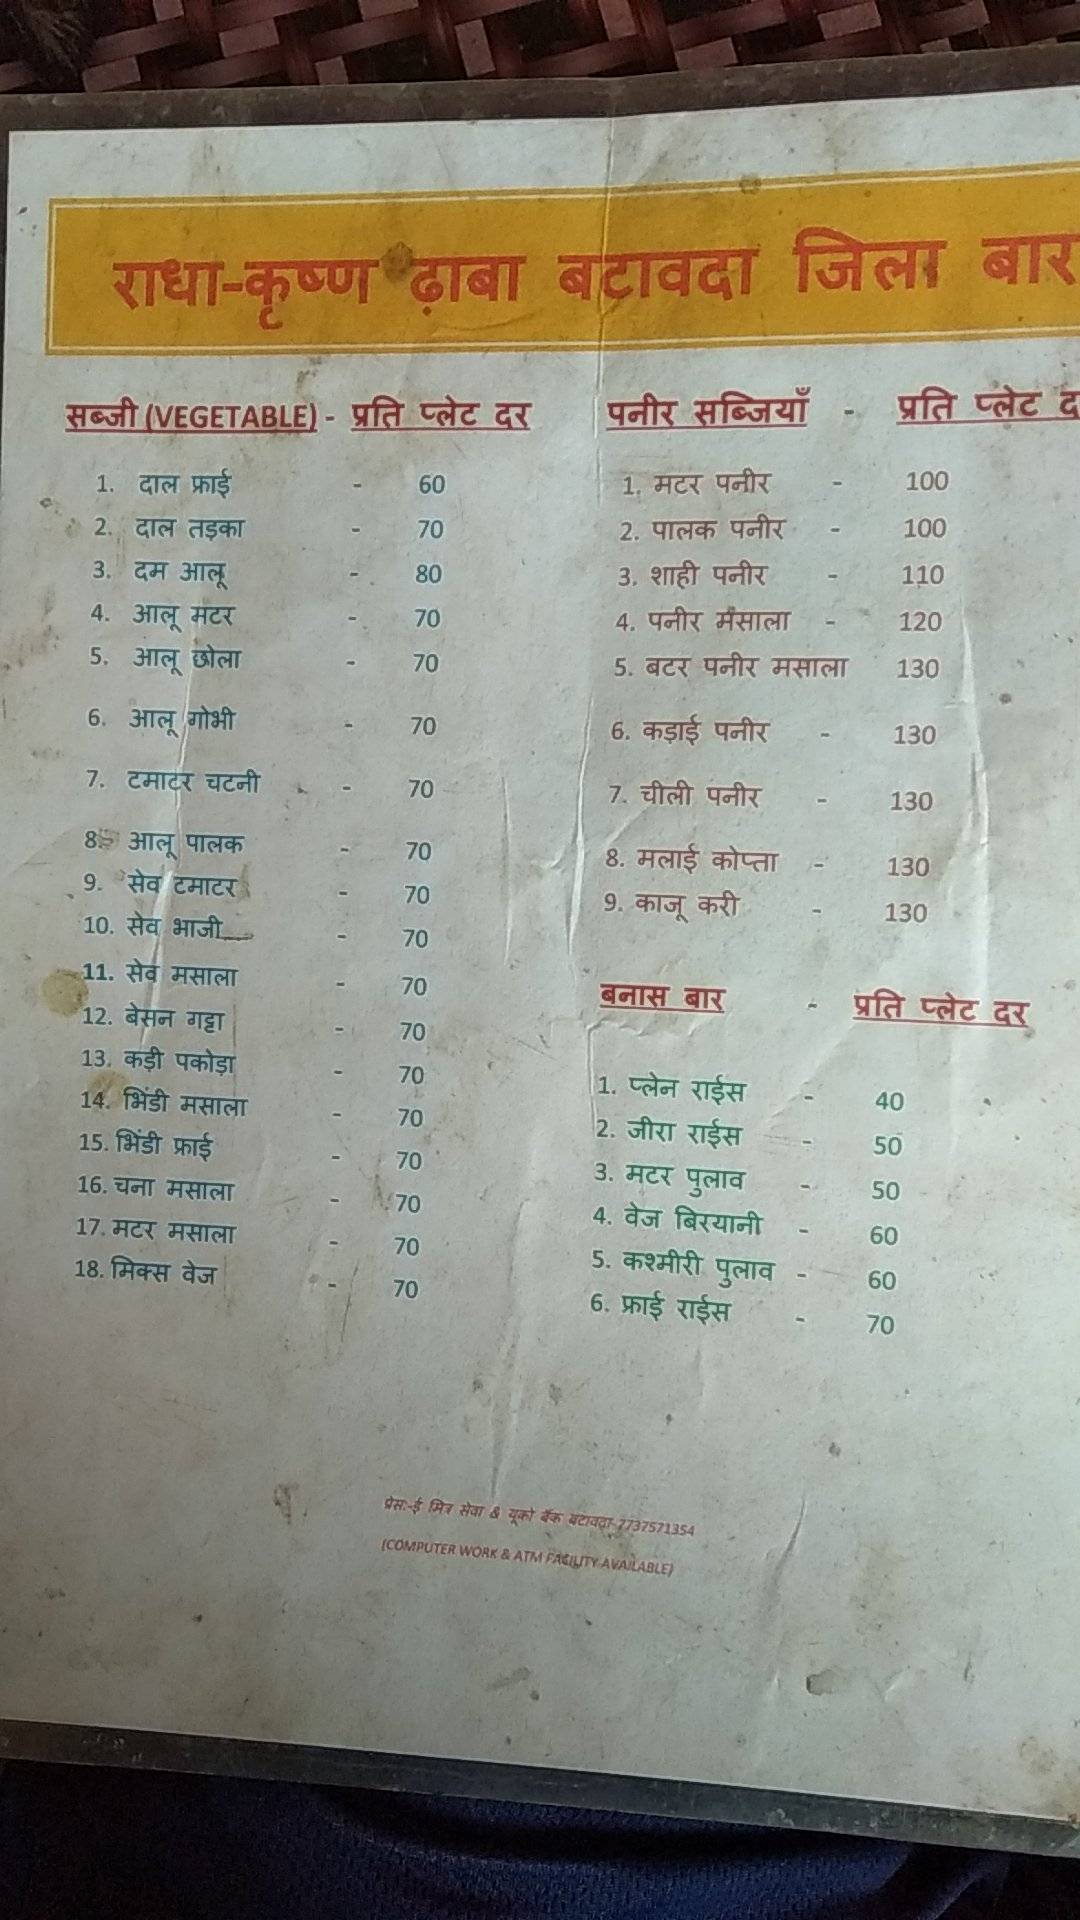 राधा-कृष्ण ढ़ाबा बटावदा जिला बार
सब्जी (VEGETABLE) - प्रति प्लेट दर
1. दाल फ्राई - 60
2. दाल तड़का - 70
3. दम आलू - 80
4. आलू मटर - 70
5. आलू छोला - 70
6. आलू गोभी - 70
7. टमाटर चटनी - 70
8. आलू पालक - 70
9. सेव टमाटर - 70
10. सेव भाजी - 70
11. सेव मसाला - 70
12. बेसन गट्टा - 70
13. कड़ी पकोड़ा - 70
14. भिंडी मसाला - 70
15. भिंडी फ्राई - 70
16. चना मसाला - 70
17. मटर मसाला - 70
18. मिक्स वेज - 70
पनीर सब्जियाँ - प्रति प्लेट द
1. मटर पनीर - 100
2. पालक पनीर - 100
3. शाही पनीर - 110
4. पनीर मसाला - 120
5. बटर पनीर मसाला 130
6. कड़ाई पनीर - 130
7. चीली पनीर - 130
8. मलाई कोप्ता - 130
9. काजू करी - 130
बनास बार - प्रति प्लेट दर
1. प्लेन राईस - 40
2. जीरा राईस - 50
3. मटर पुलाव - 50
4. वेज बिरयानी - 60
5. कश्मीरी पुलाव - 60
6. फ्राई राईस - 70
प्रेस:-ई मित्र सेवा & यूको बैंक बटावदा 7737571354
(COMPUTER WORK & ATM FACILITY AVAILABLE)